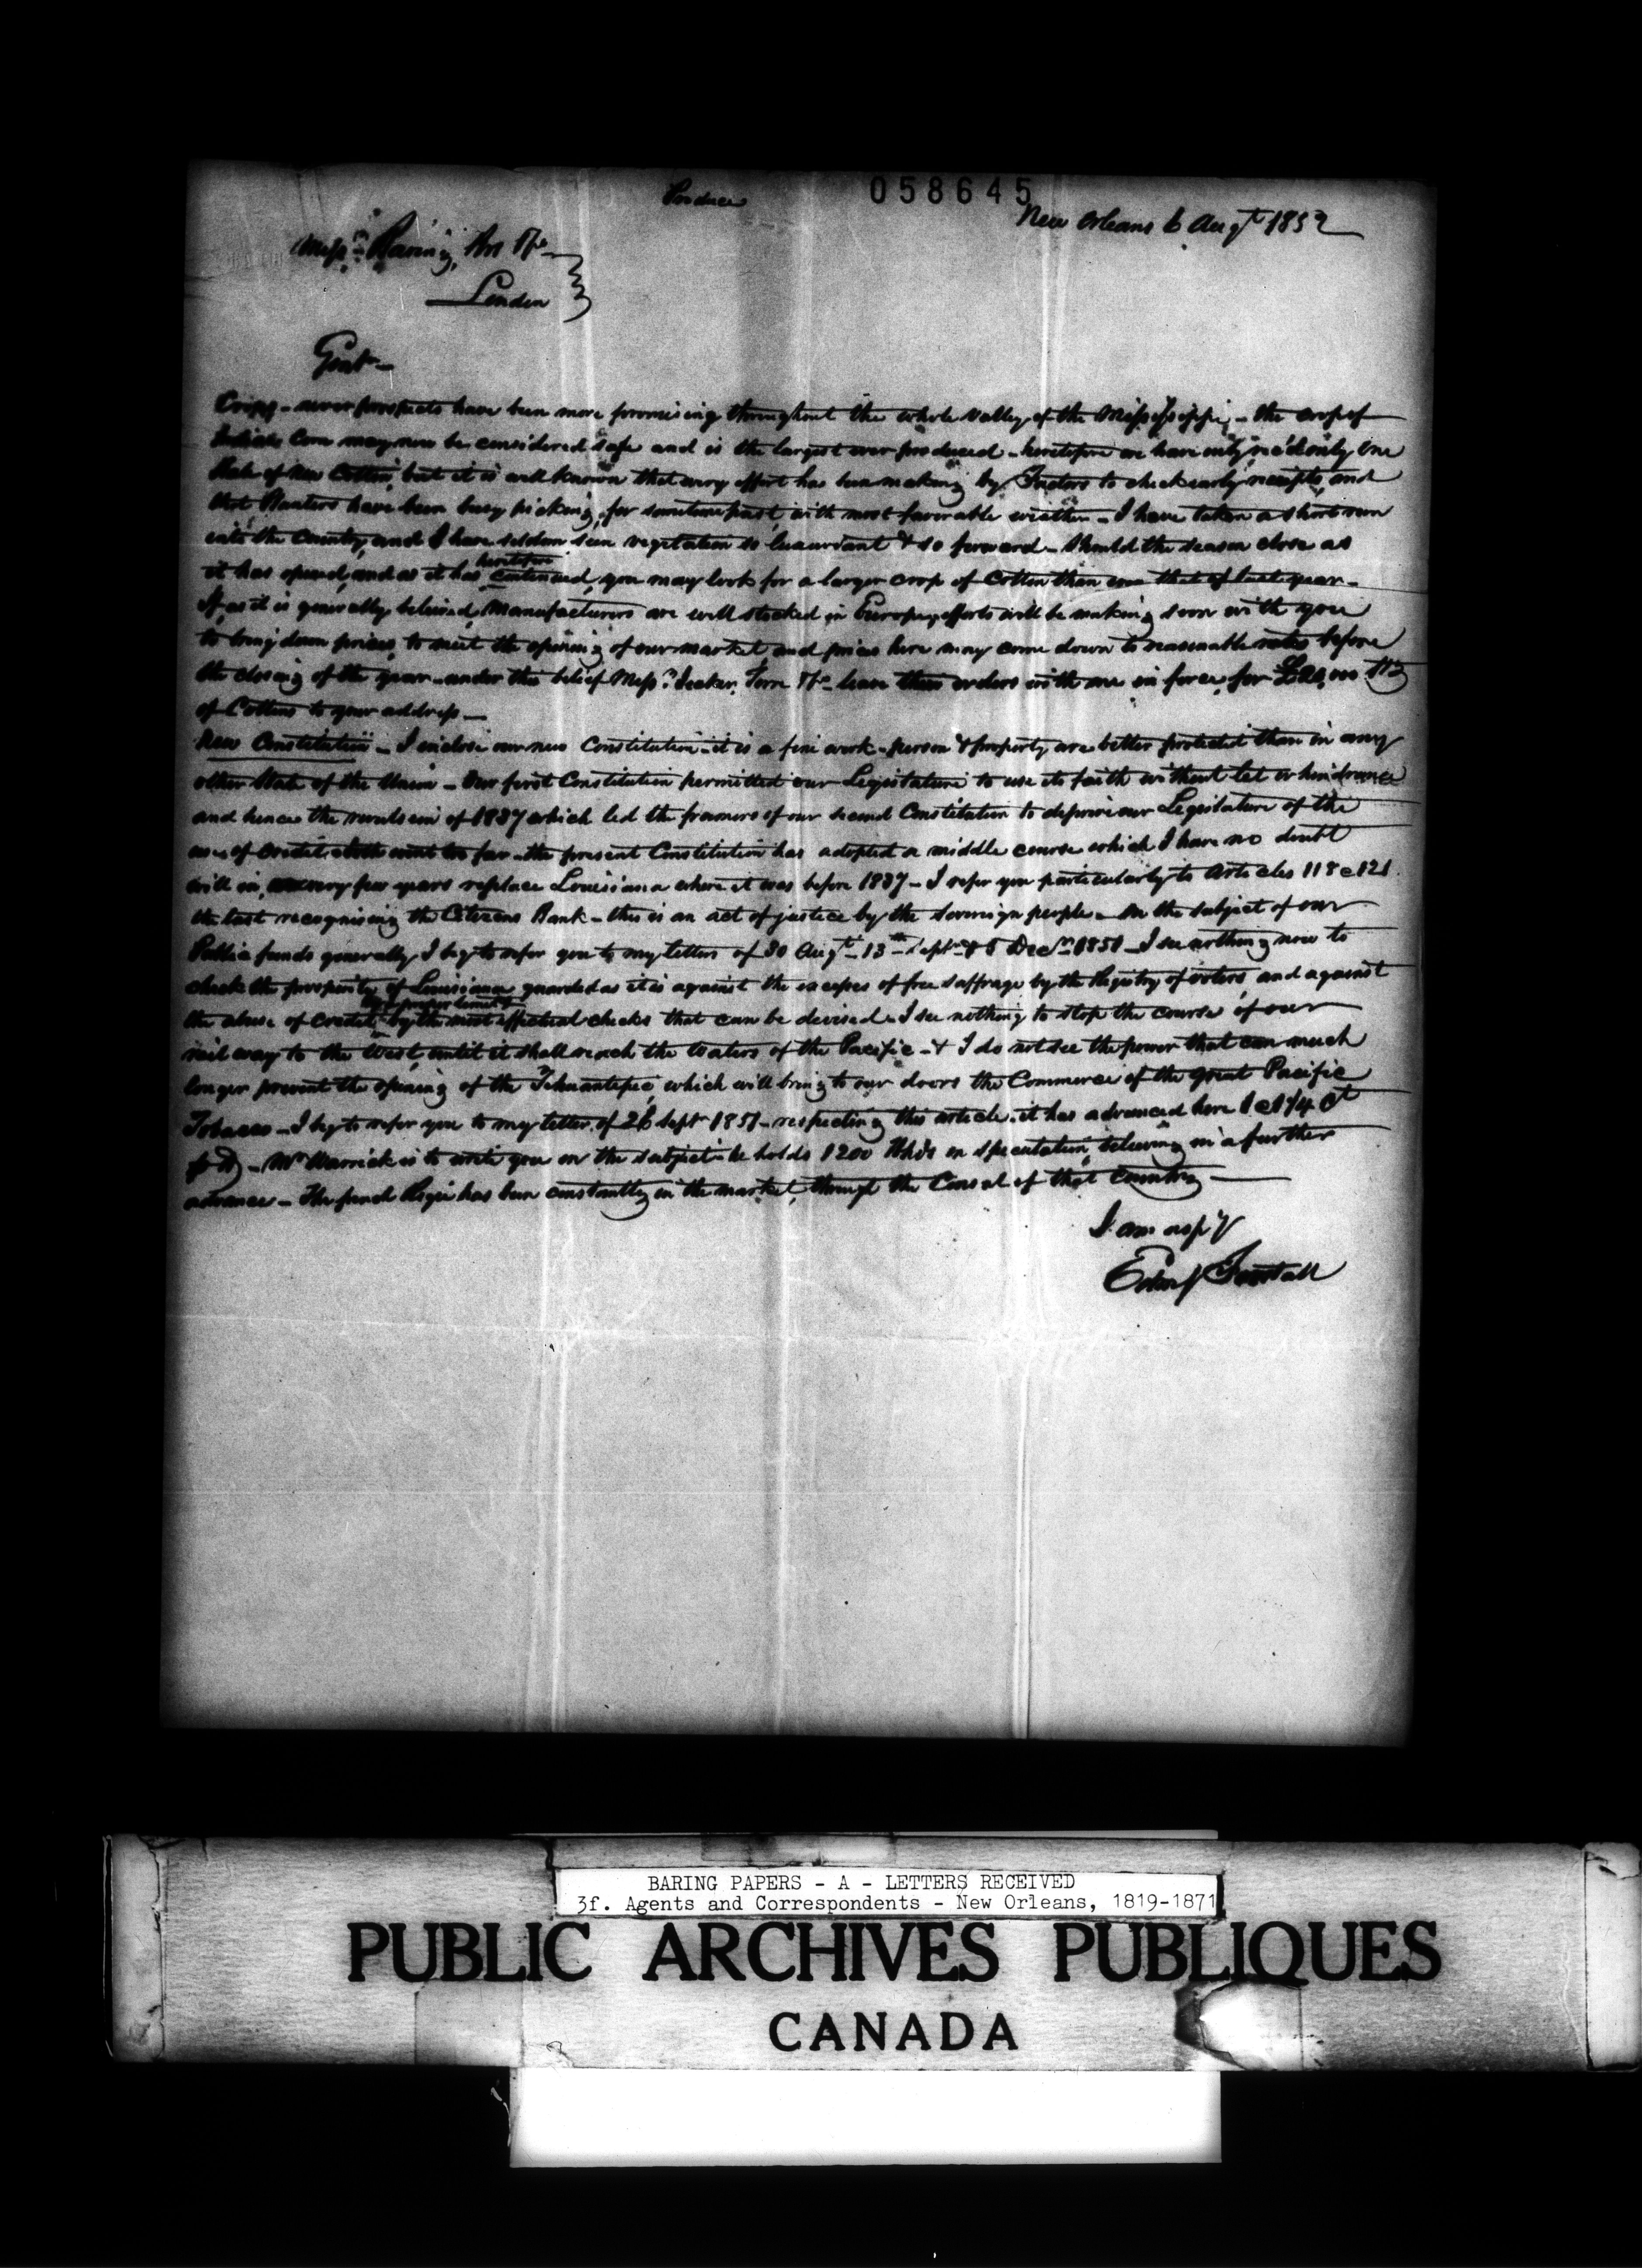 Produce
058645
New Orleans 6 Augt 1852
Messrs Baring, Bros & Co
London
Gentn
Crops - never prospects have been more promising throughout the whole valley of the Mississippi, - the crop of
Indian Corn may now be considered safe and is the largest ever produced - heretofore we have only rec'd only one
Bale of New Cotton, but it is well known that every effort has been making by Factors to check early receipts, and
that Planters have been busy picking, for sometime past, with most favorable weather - I have taken a short run
into the Country, and I have seldom seen vegetation so luxuriant & so forward - Should the season close as
it has opened, and as it has heretofore continued, you may look for a larger crop of Cotton than that of last year -
If, as it is generally believed, Manufacturers are well stocked in Europe, efforts will be making soon with you
to bring down prices, to meet the opening of our market and prices here may come down to reasonable rates before
the closing of the year - under this belief Messrs Decker, & Co leave their orders with me in force, for
of Cottons to your address -
New Constitution - I inclose our new Constitution - it is a fine work - person & property are better protected than in any
other State of the Union - Our first Constitution permitted our Legislature to use its faith without let or hindrance
and hence the revulsion of 1837 which led the framers of our second Constitution to deprive our Legislature of the
uses of credit, both went too far - the present Constitution has adopted a middle course which I have no doubt
will in very few years replace Louisiana where it was before 1837 - I refer you particularly to Articles 118 @ 121
the last recognising the Citizens Bank - this is an act of justice by the sovereign people - On the subject of our
Public funds generally, I beg to refer you to my letters of 30 Augt - 13th Septr & 5 Decr 1851 - I see nothing now to
check the prosperity of Louisiana guarded as it is against the excesses of free suffrage by the Registry of voters, and against
the abuse of credit, by the most effectual checks that can be devised - I see nothing to stop the course of our
rail way to the West, until it shall reach the Waters of the Pacific - & I do not see the power that can much
longer prevent the opening of the Tehuantepec, which will bring to our doors the Commerce of the great Pacific
Tobacco - I beg to refer you to my letter of 26 Sept 1851 - respecting this article. it has advanced here 1 @ 1 1/4 Ct
p lb - Mr Warrick is to write you on the subject - he holds 1200 Hhds on speculation, believing in a further
advance - The french Regie has been constantly in the market, through the Consul of that Country -
I am respy
Edmd J Forstall
BARING PAPERS - A - LETTERS RECEIVED
3f. Agents and Correspondents - New Orleans, 1819-1871
PUBLIC ARCHIVES PUBLIQUES
CANADA